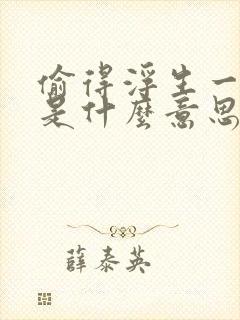 偷得浮生一
是什麼意思
薛泰英